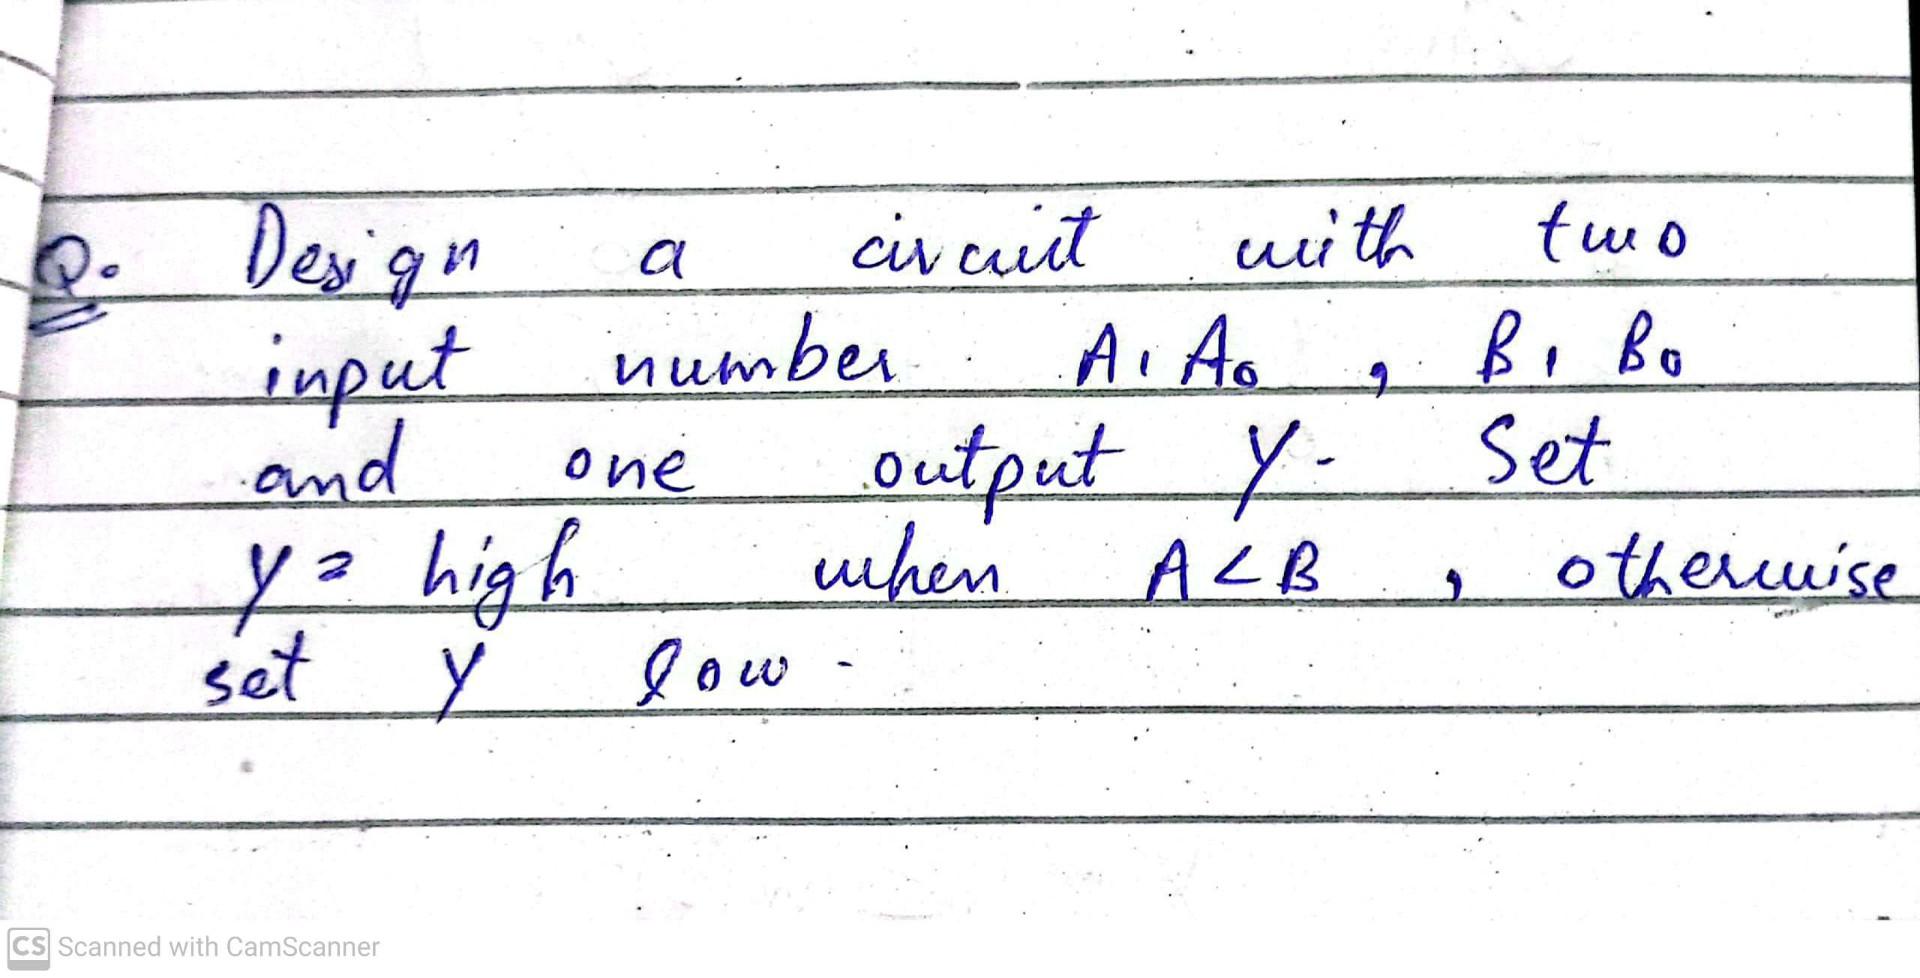 Q. Design a circuit with two
input number A1 A0 , B1 B0
and one output Y. Set
Y = high when A<B , otherwise
set Y low.
CS Scanned with CamScanner